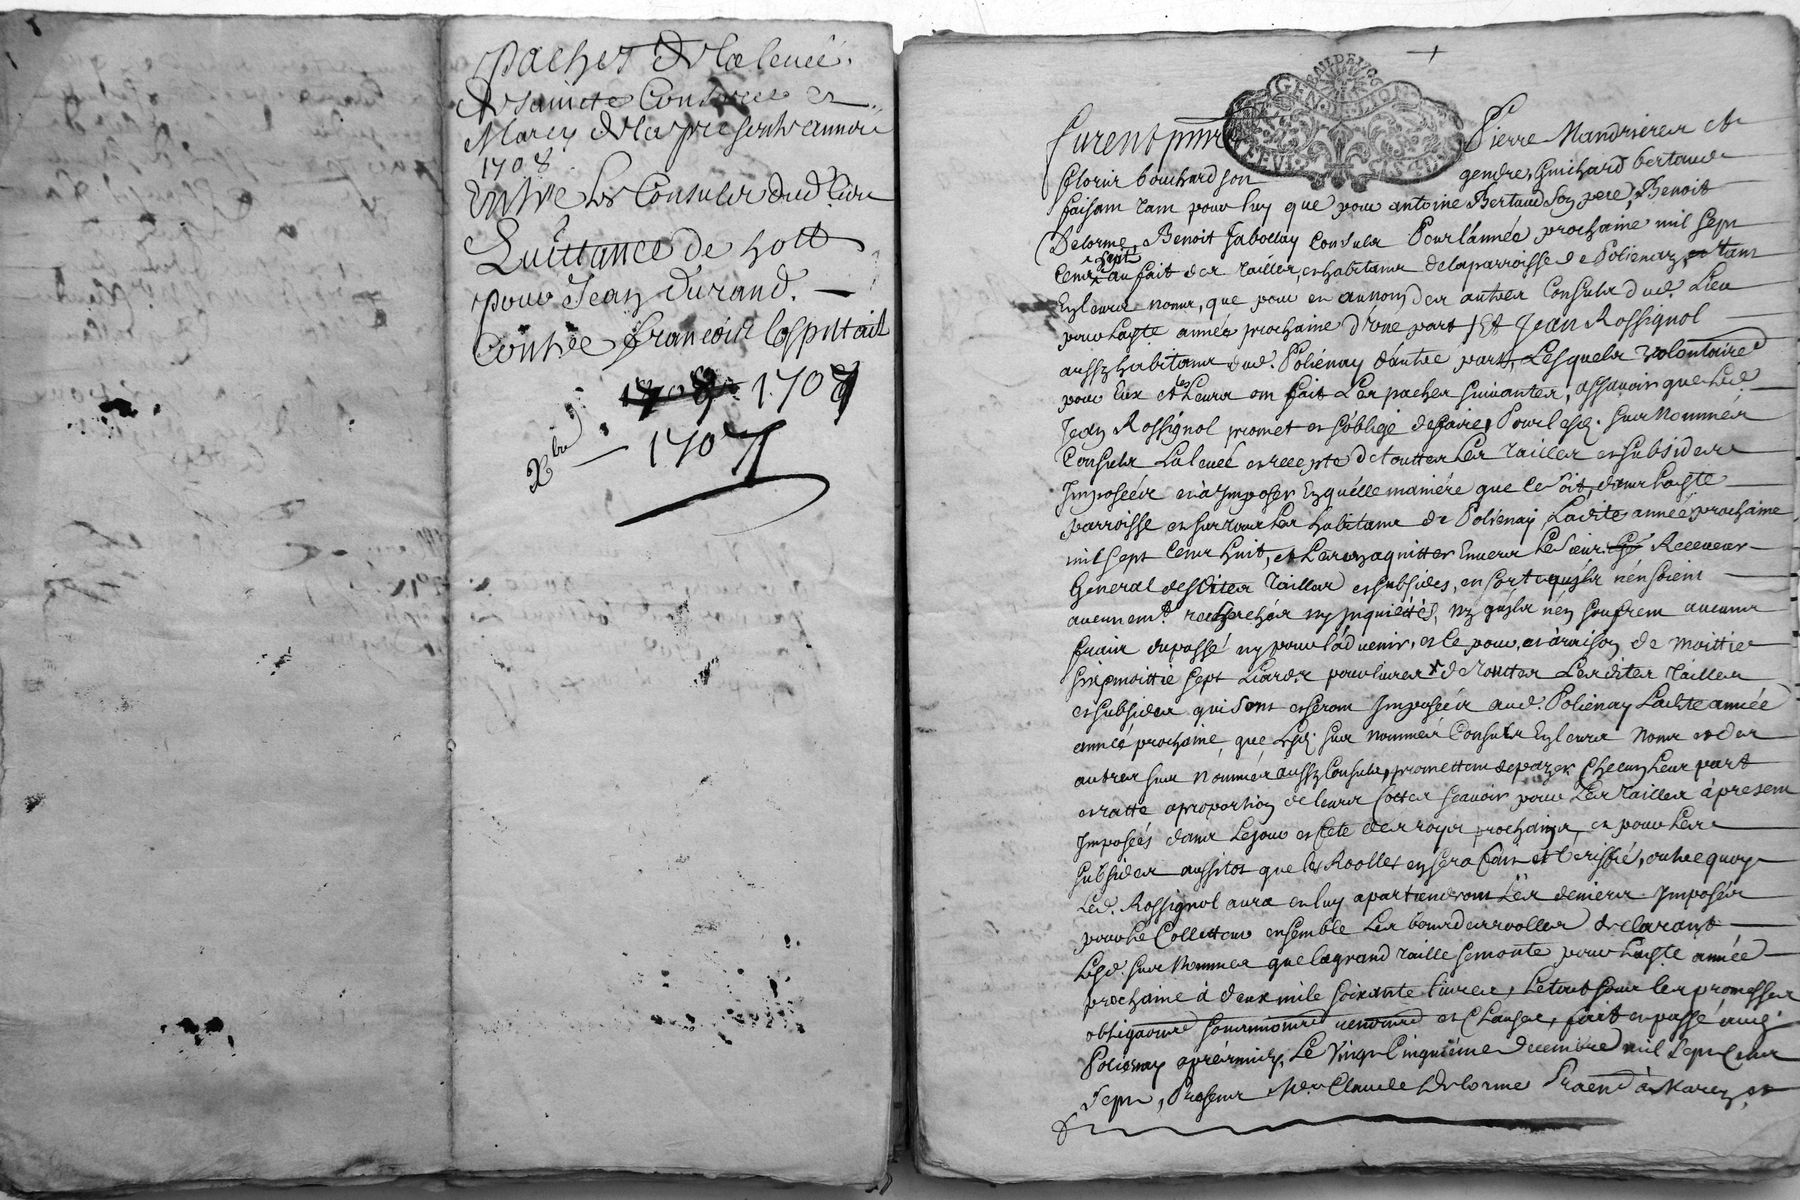 paches de la levée
de saincte Consorce et
Marcy de la presente année
1708
Entre les Consuls dud. lieu
Quittance de hoth
pour Jean Durand.
Contre françois l'ospitail
1708 1707
Xbre 1707
GEN DE LION
furent pnts Pierre Mandrieres et
florir bouchard son gendre, Guichard bertaud
faisant tant pour luy que pour antoine Bertaud son pere, Benoit
Delorme, Benoit Jabollay Consuls Pour l'année prochaine mil sept
sept
Cent au fait des Tailles, et habitans de la parroisse de Polienay, et tant
En leurs noms, que pour et au nom des autres Consuls dud. Lieu
pour Ladte année prochaine d'une part Et Jean Rossignol
aussy habitans dud. Poliénay d'autre part, Lesquels volontaire
pour Eux et les Leurs ont fait Les paches suivantes, assavoir que led.
Jean Rossignol promet et s'oblige de faire, Pour lesd. sus Nommés
Consuls La levée et recepte de touttes Les Tailles et subsides
Imposéés et à Imposer En quélle maniére que Ce soit, dans Ladte
parroisse et sur tous Les habitans de Poliénay Ladite année prochaine
mil sept Cens huit, et Les en aquitter Envers Le sieur Receveur
General desdites Tailles et subsides, en sorte qu'jls n'en soient
aucunemt. recherchés ny Inquiéttés, Ny qu'jls n'en soufrent aucuns
frais du passé ny pour l'advenir, et Ce pour, et à raison de Moittié
six, moittie sept Liards pour livres de touttes Lesdites Tailles
et subsides qui sont et seront Imposéés aud. Poliénay Ladte année
année prochaine, que Lesd. sus nommés Consuls En leurs Noms et des
autres sus nommés aussy Consuls, promettent de payer Checung leur part
et ratte a proportion de leurs Cottes sçavoir pour Les Tailles à présent
Imposéés dans Le jour et fete des roys prochains, et pour Les
subsides aussitot que les Roolles en sera fait et Veriffié, outre quoy
Led. Rossignol aura et luy apartiendront Les deniers Imposés
pour le Collecteur ensemble Les bons des roolles declarants
Lesd. sus Nommes que la grand Taille se monte pour Ladte. année
prochaine à deux mile soixante livres, Le tout sous les promesses
obligaons soumions renons et Clauses, fait et passé aud.
Poliénay aprés midy, Le Vingt Cinquiéme decembre mil sept Cens
sept, Presens Mre Claude Delorme Praen à Marcy, et